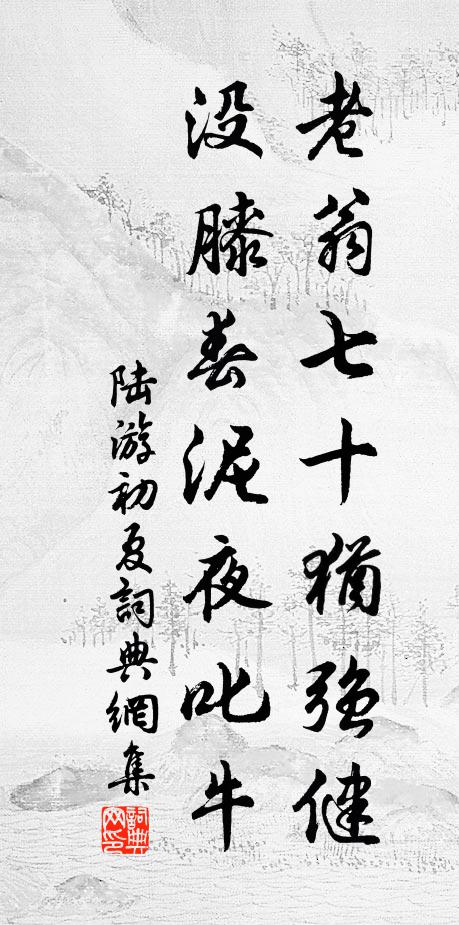 老翁七十猶強健
没膝春泥夜叱牛
陆游初夏詞典網集
詞典网印